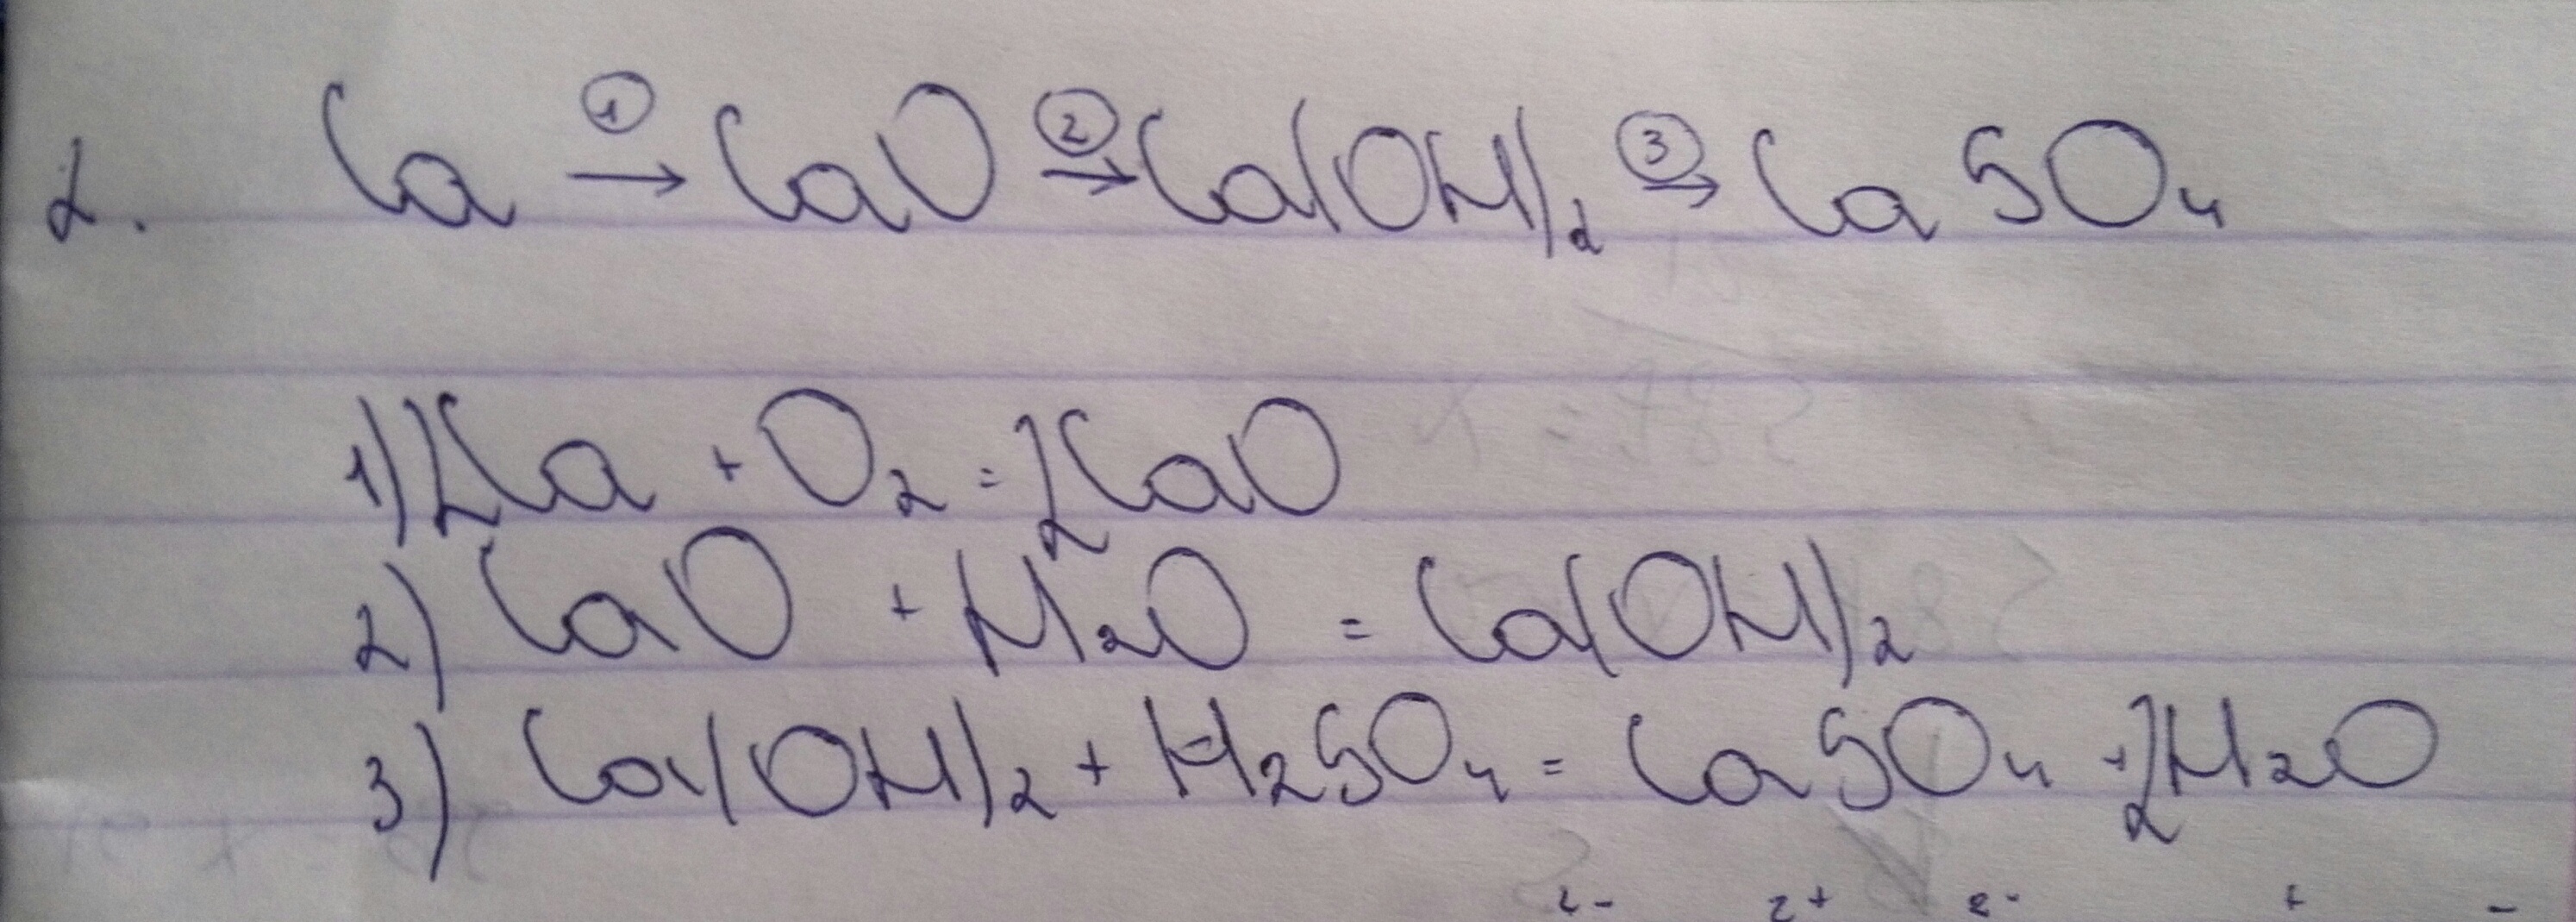 2. Ca ①→ CaO ②→ Ca(OH)₂ ③→ CaSO₄
1) 2Ca + O₂ = 2CaO
2) CaO + H₂O = Ca(OH)₂
3) Ca(OH)₂ + H₂SO₄ = CaSO₄ + 2H₂O
2- 2+ 2- + -